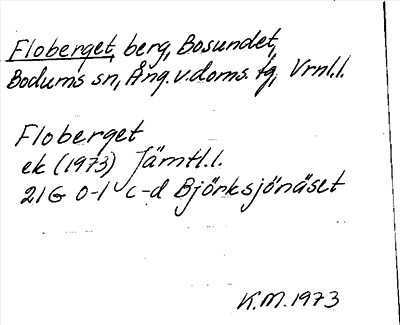 Floberget, berg, Bosundet,
Bodums sn, Ång. v. doms. tg, Vrnl.l.
Floberget
ek (1973) Jämtl.l.
21G 0-1 c-d Björksjönäset
K.M. 1973